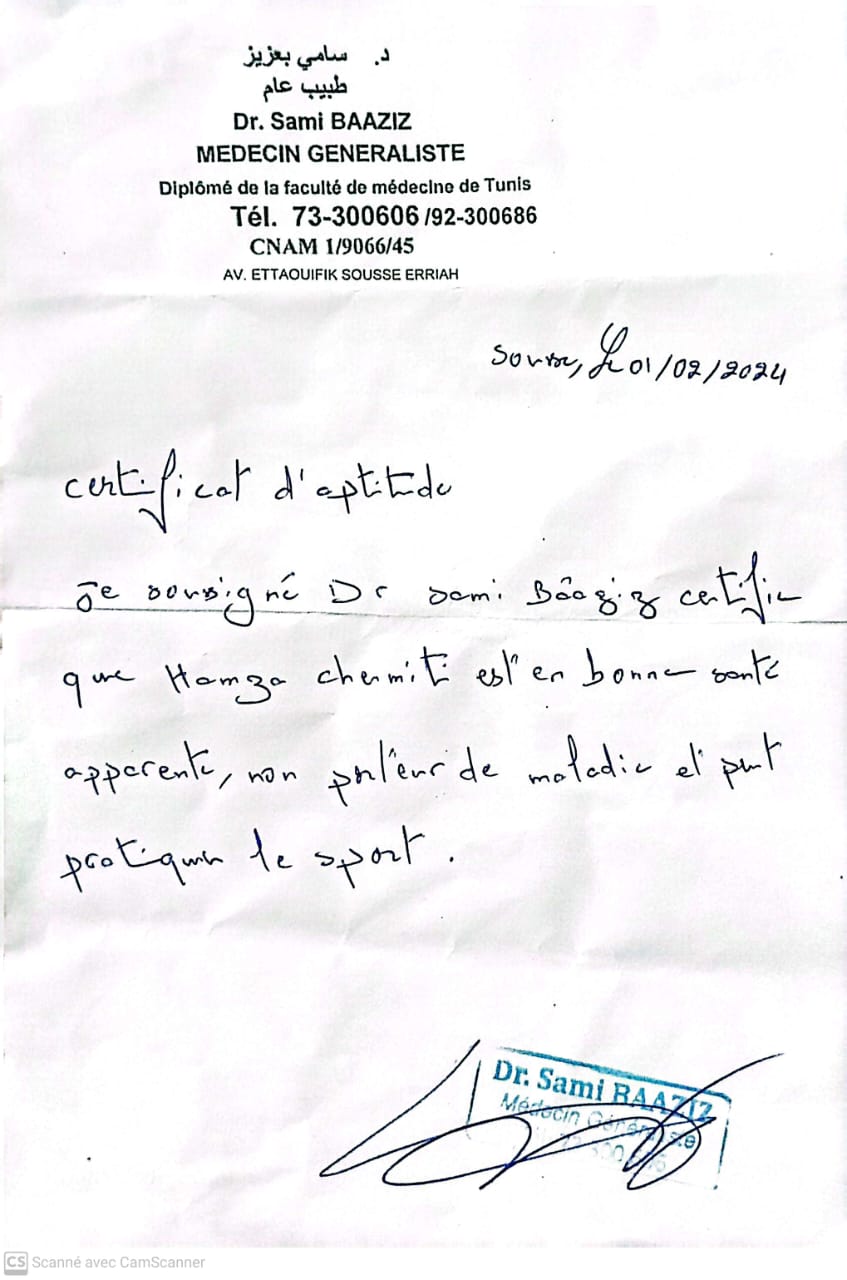 د. سامي بعزيز
طبيب عام
Dr. Sami BAAZIZ
MEDECIN GENERALISTE
Diplômé de la faculté de médecine de Tunis
Tél. 73-300606 /92-300686
CNAM 1/9066/45
AV. ETTAOUIFIK SOUSSE ERRIAH
Sousse, Le 01/02/2024
certificat d'aptitude
Je soussigné Dr Sami Bâaziz certifie
que Hamza chermiti est en bonne santé
apparente, non porteur de maladie et peut
pratiquer le sport.
Dr. Sami BAAZIZ
Médecin Généraliste
CS Scanné avec CamScanner